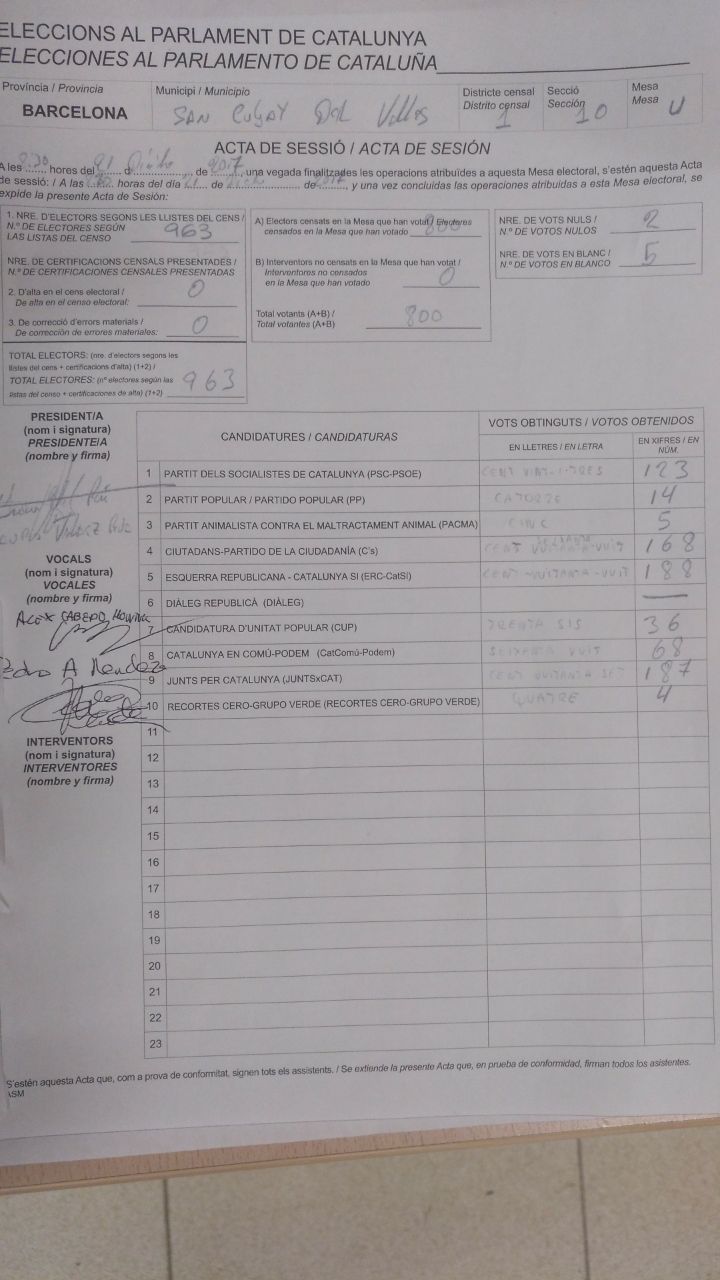 ELECCIONS AL PARLAMENT DE CATALUNYA
ELECCIONES AL PARLAMENTO DE CATALUÑA
Província / Provincia
BARCELONA
Municipi / Municipio
SAN CUGAT DEL Vallés
Districte censal
Distrito censal
1
Secció
Sección
10
Mesa
Mesa
U
ACTA DE SESSIÓ / ACTA DE SESIÓN
A les 8:30 hores del 21 d de 2017, una vegada finalitzades les operacions atribuïdes a aquesta Mesa electoral, s'estén aquesta Acta
de sessió: / A las horas del día de de 2017, y una vez concluidas las operaciones atribuidas a esta Mesa electoral, se
expide la presente Acta de Sesión:
1. NRE. D'ELECTORS SEGONS LES LLISTES DEL CENS /
N.º DE ELECTORES SEGÚN
LAS LISTAS DEL CENSO 963
NRE. DE CERTIFICACIONS CENSALS PRESENTADES /
N.º DE CERTIFICACIONES CENSALES PRESENTADAS
2. D'alta en el cens electoral /
De alta en el censo electoral: 0
3. De correcció d'errors materials /
De corrección de errores materiales: 0
TOTAL ELECTORS: (nre. d'electors segons les
llistes del cens + certificacions d'alta) (1+2) /
TOTAL ELECTORES: (nº electores según las
listas del censo + certificaciones de alta) (1+2) 963
A) Electors censats en la Mesa que han votat / Electores
censados en la Mesa que han votado 800
B) Interventors no censats en la Mesa que han votat /
Interventores no censados
en la Mesa que han votado 0
Total votants (A+B) /
Total votantes (A+B) 800
NRE. DE VOTS NULS /
N.º DE VOTOS NULOS 2
NRE. DE VOTS EN BLANC /
N.º DE VOTOS EN BLANCO 5
PRESIDENT/A
(nom i signatura)
PRESIDENTE/A
(nombre y firma)
VOCALS
(nom i signatura)
VOCALES
(nombre y firma)
ALEX CABERO
Pedro A Mendoza
INTERVENTORS
(nom i signatura)
INTERVENTORES
(nombre y firma)
CANDIDATURES / CANDIDATURAS
VOTS OBTINGUTS / VOTOS OBTENIDOS
EN LLETRES / EN LETRA
EN XIFRES / EN
NÚM.
1 PARTIT DELS SOCIALISTES DE CATALUNYA (PSC-PSOE) CENT VINT-I-TRES 123
2 PARTIT POPULAR / PARTIDO POPULAR (PP) CATORZE 14
3 PARTIT ANIMALISTA CONTRA EL MALTRACTAMENT ANIMAL (PACMA) CINC 5
4 CIUTADANS-PARTIDO DE LA CIUDADANÍA (C's) CENT SEIXANTA-VUIT 168
5 ESQUERRA REPUBLICANA - CATALUNYA SI (ERC-CatSI) CENT-VUITANTA-VUIT 188
6 DIÀLEG REPUBLICÀ (DIÀLEG) —
7 CANDIDATURA D'UNITAT POPULAR (CUP) TRENTA SIS 36
8 CATALUNYA EN COMÚ-PODEM (CatComú-Podem) SEIXANTA VUIT 68
9 JUNTS PER CATALUNYA (JUNTSxCAT) CENT VUITANTA SET 187
10 RECORTES CERO-GRUPO VERDE (RECORTES CERO-GRUPO VERDE) QUATRE 4
11
12
13
14
15
16
17
18
19
20
21
22
23
S'estén aquesta Acta que, com a prova de conformitat, signen tots els assistents. / Se extiende la presente Acta que, en prueba de conformidad, firman todos los asistentes.